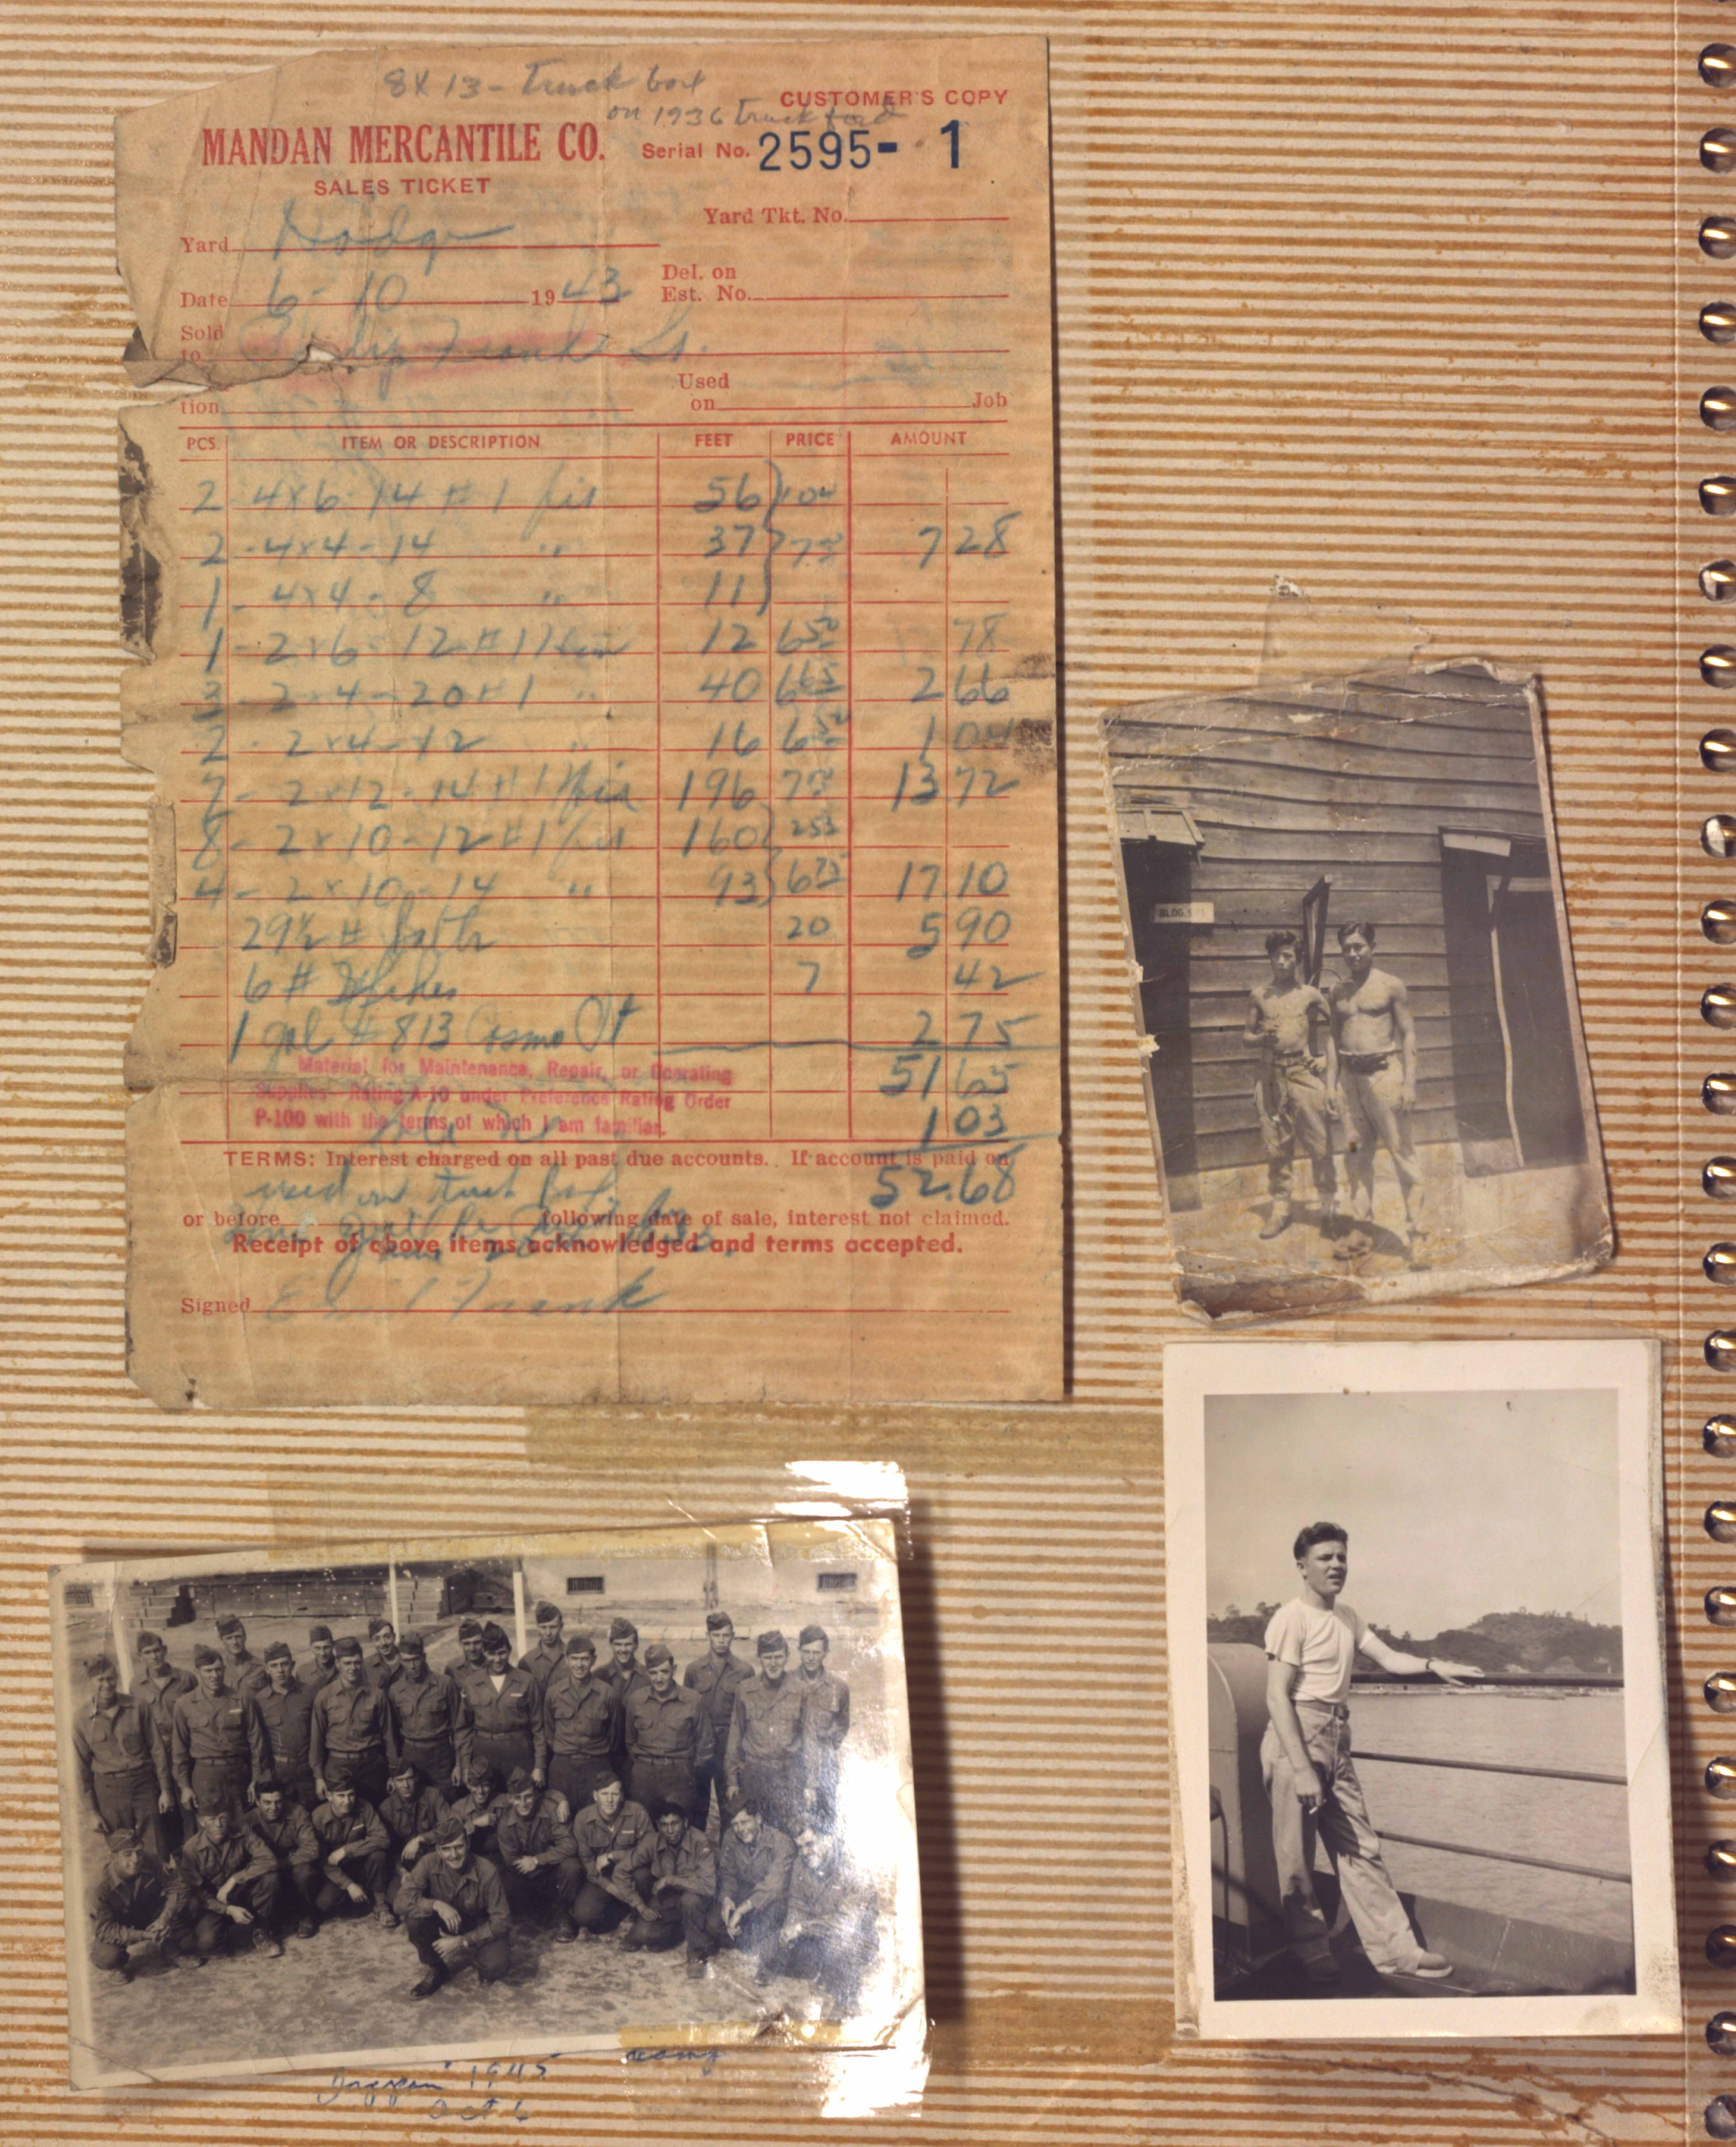 8 x 13 - Truck box
on 1936 truck ford
CUSTOMER'S COPY
MANDAN MERCANTILE CO.
Serial No. 2595- 1
SALES TICKET
Yard Tkt. No.
Yard
Date 6-10 1943
Del. on
Est. No.
Sold
to Frank Sr.
tion
Used
on Job
PCS. ITEM OR DESCRIPTION FEET PRICE AMOUNT
2 4x6-14 #1 fir 56 104
2 -4x4-14 " 37 7 28
1 - 4x4 - 8 " 11
1 - 2x6 - 12 #1 fir 12 650 78
3 - 2x4 - 20 #1 " 40 665 2 66
2 - 2x4 - 12 " 16 650 1 04
7 - 2x12 - 14 #1 fir 196 700 13 72
8 - 2x10 - 12 #1 fir 160 253
4 - 2x10 - 14 " 93 675 17 10
29½ # 20 5 90
6 # 7 42
1 gal # 813 2 75
Material for Maintenance, Repair, or Operating
Supplies—Rating A-10 under Preference Rating Order
P-100 with the terms of which I am familiar.
51 65
1 03
TERMS: Interest charged on all past due accounts. If account is paid on
52.68
used on truck
or before following date of sale, interest not claimed.
Receipt of above items acknowledged and terms accepted.
Signed Frank
BLDG.
1945
Oct 6